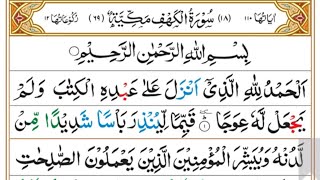 اٰیاتها ١١٠ (١٨) سُوْرَةُ الْكَهْفِ مَكِّيَّةٌ (٦٩) رُكُوْعَاتُهَا ١٢
بِسْمِ اللهِ الرَّحْمٰنِ الرَّحِيْمِ
اَلْحَمْدُ لِلّٰهِ الَّذِيْۤ اَنْزَلَ عَلٰى عَبْدِهِ الْكِتٰبَ وَلَمْ
يَجْعَلْ لَّهٗ عِوَجًا ؕ قَيِّمًا لِّيُنْذِرَ بَاْسًا شَدِيْدًا مِّنْ
لَّدُنْهُ وَيُبَشِّرَ الْمُؤْمِنِيْنَ الَّذِيْنَ يَعْمَلُوْنَ الصّٰلِحٰتِ